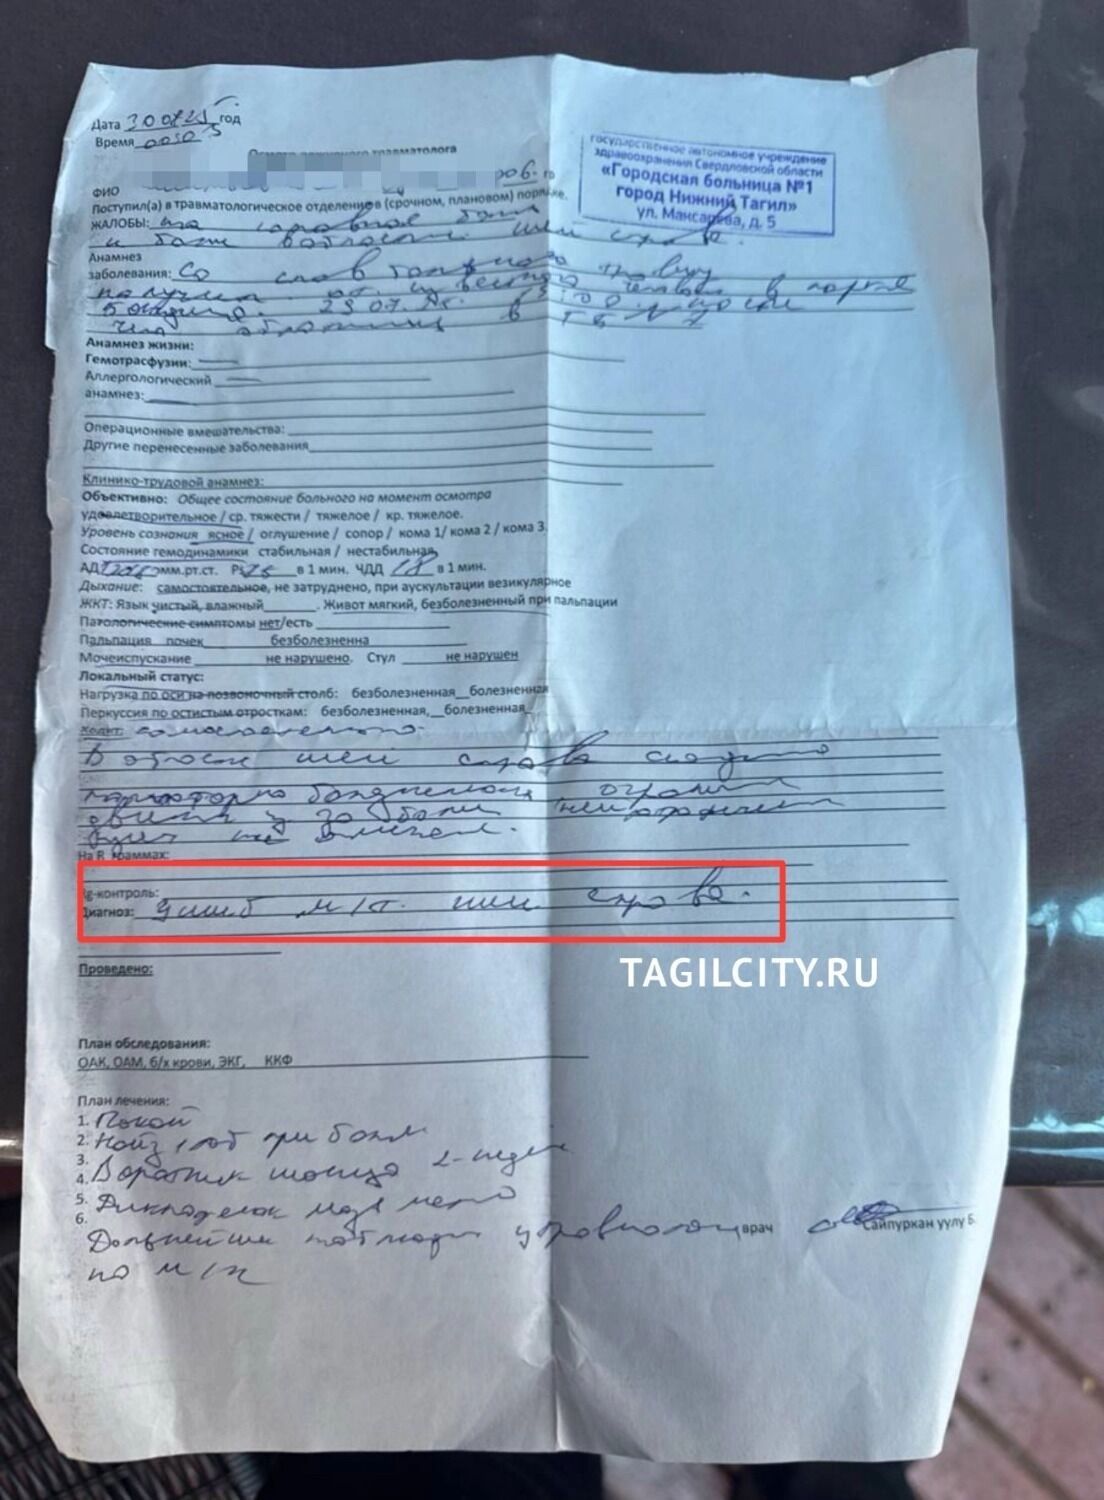 Дата 30 07 25 год
Время 00 30
Осмотр дежурного травматолога
государственное автономное учреждение
здравоохранения Свердловской области
«Городская больница №1
город Нижний Тагил»
ул. Максарева, д. 5
ФИО
Поступил(а) в травматологическое отделение (срочном, плановом) порядке.
ЖАЛОБЫ: на головные боли
и боли в области шеи справа.
Анамнез
заболевания: Со слов травму
получил от человека в парке
29.07.25г. в после
чего обратился в
Анамнез жизни:
Гемотрасфузии:
Аллергологический
анамнез:
Операционные вмешательства:
Другие перенесенные заболевания
Клинико-трудовой анамнез:
Объективно: Общее состояние больного на момент осмотра
удовлетворительное / ср. тяжести / тяжелое / кр. тяжелое.
Уровень сознания ясное / оглушение / сопор / кома 1/ кома 2 / кома 3.
Состояние гемодинамики стабильная / нестабильная
АД мм.рт.ст. Ps 75 в 1 мин. ЧДД 18 в 1 мин.
Дыхание: самостоятельное, не затруднено, при аускультации везикулярное
ЖКТ: Язык чистый, влажный . Живот мягкий, безболезненный при пальпации
Патологические симптомы нет/есть
Пальпация почек безболезненна
Мочеиспускание не нарушено. Стул не нарушен
Локальный статус:
Нагрузка по оси на позвоночный столб: безболезненная болезненная
Перкуссия по остистым отросткам: безболезненная, болезненная
Ходит: самостоятельно.
В области шеи справа
пальпаторно болезненность, огранич
движения из за боли
не
На R граммах:
Rg-контроль:
Диагноз: Ушиб м/т. шеи справа.
TAGILCITY.RU
Проведено:
План обследования:
ОАК, ОАМ, б/х крови, ЭКГ, ККФ
План лечения:
1. Покой
2. Найз 1 таб при боли
3.
4. Воротник шанца 2-недели
5.
6.
Дальнейшее наблюдение у травматолога
по м/ж
врач Сайпуркан уулу Б.